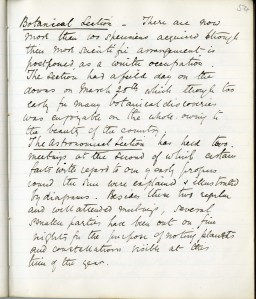 54
Botanical Section - There are now
more than 100 specimens acquired though
their more scientific arrangement is
postponed as a winter occupation.
The Section had a field day on the
downs on March 25th which though too
early for many botanical discoveries
was enjoyable on the whole owing to
the beauty of the country.
The Astronomical Section has held two
meetings at the second of which certain
facts with regard to our yearly progress
round the Sun were explained & illustrated
by diagrams. Besides these two regular
and well attended meetings, several
smaller parties have been out on fine
nights for the purpose of noting planets
and constellations visible at this
time of the year.